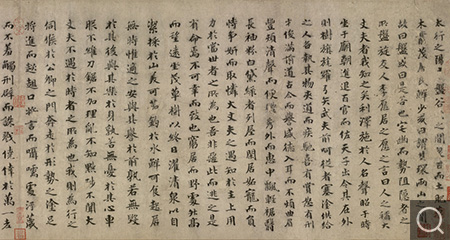 太行之陽有盤谷之間泉甘而土肥
木藂茂居民鮮少或曰謂其環兩山之間
故曰盤或曰是谷也宅幽而勢阻隱者之
所盤旋友人李愿居之愿之言曰人之稱大
丈夫者我知之矣利澤施於人名聲昭于時
坐于廟朝進退百官而佐天子出令其在外
則樹旗旄羅弓矢武夫前呵從者塞塗供給
之人各執其物夾道而疾馳喜有賞怒有刑
才俊滿前道古今而譽盛德入耳而不煩曲眉
豐頰清聲而便體秀外而惠中飄輕裾翳
長袖粉白黛綠者列屋而閒居妬寵而負
恃爭妍而取憐大丈夫之遇知於主上用
力於當世者之所為也吾非惡此而逃之是
有命焉不可幸而致也窮居而野處升高
而望遠坐茂樹以終日濯清泉以自
潔採於山美可茹釣於水鮮可食起居
無時惟適之安與其譽於前孰若無毀
於其後與其樂於身孰若無憂於其心車
服不維刀鋸不加理亂不知黜陟不聞大
丈夫不遇於時者之所為也我則行之
伺候於公卿之門奔走於形勢之途足
將進而趑趄口將言而囁嚅處汙穢
而不羞觸刑辟而誅戮僥倖於萬一老